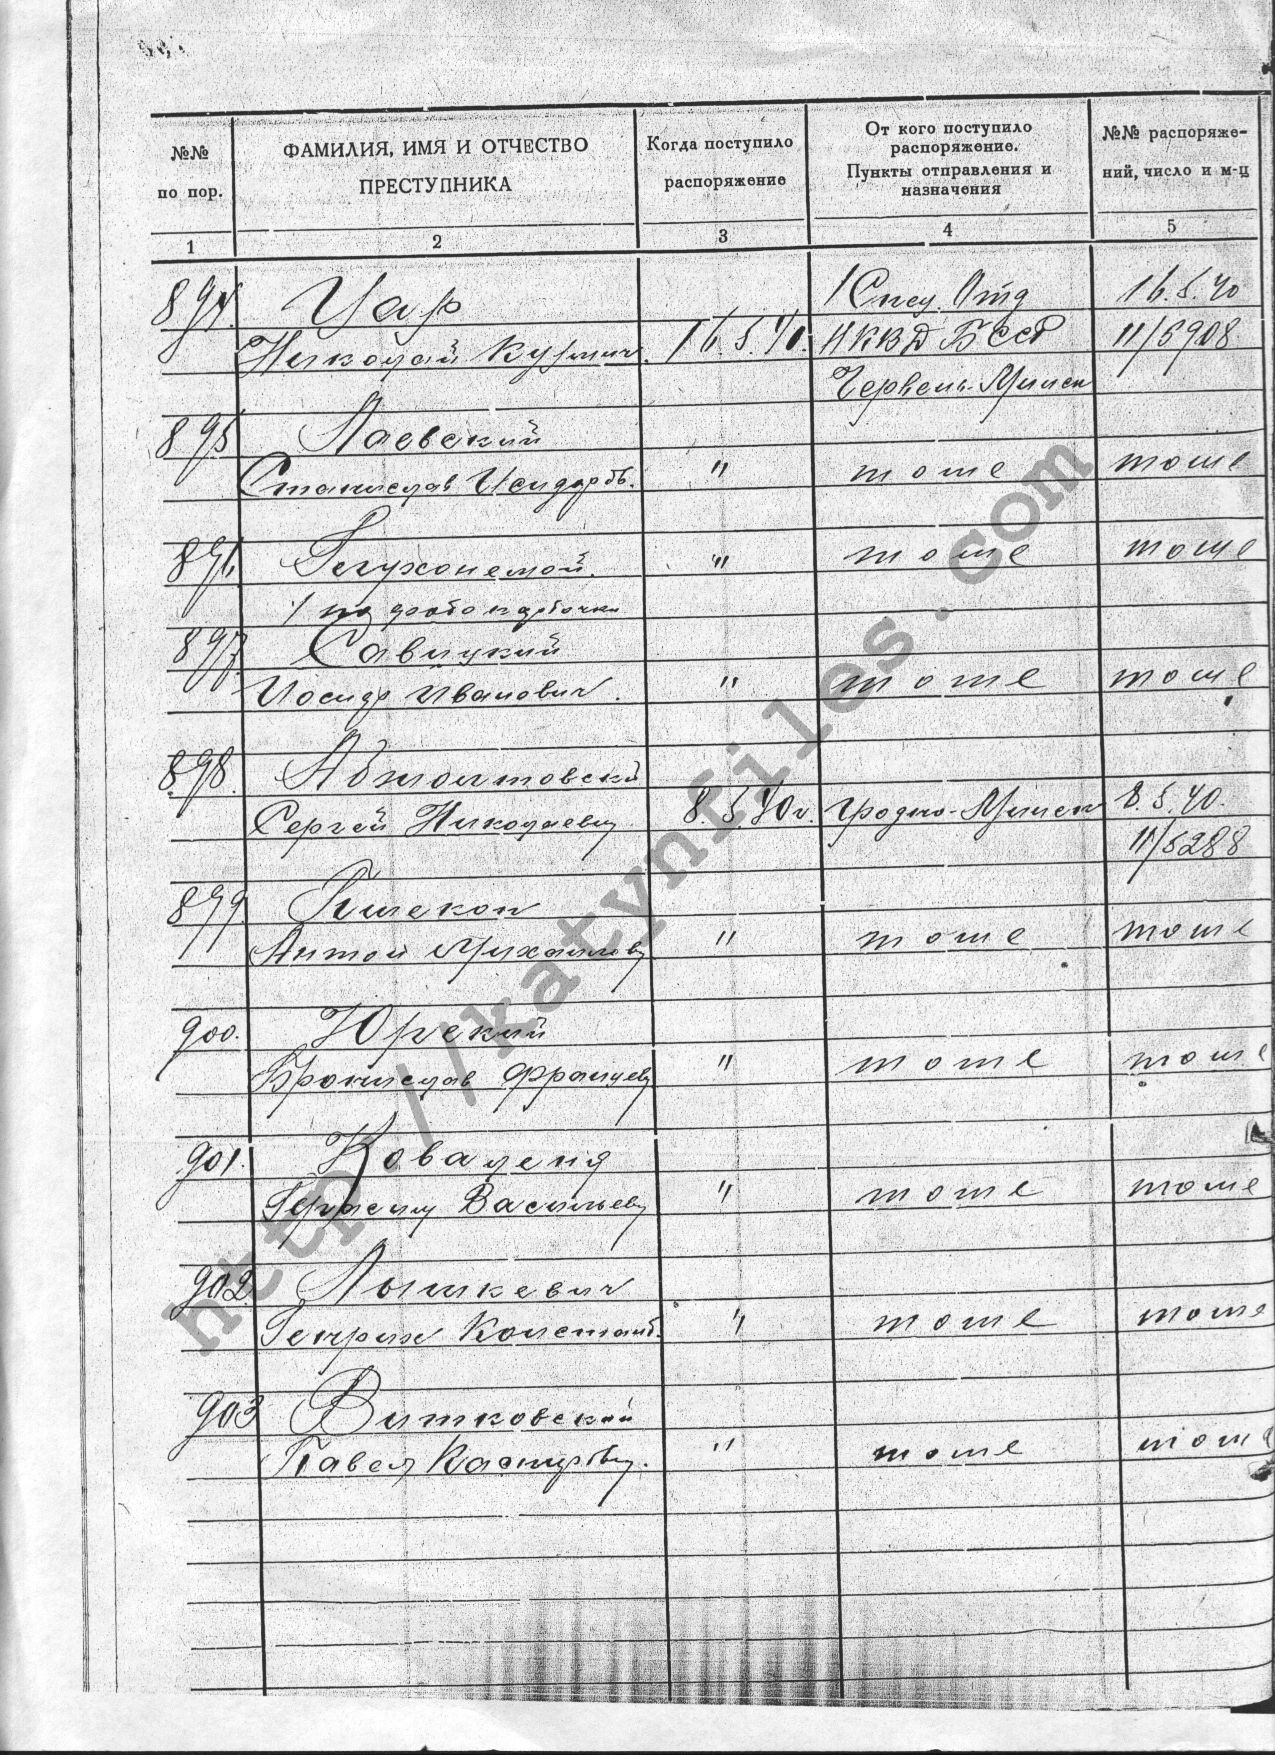 №№ по пор.
ФАМИЛИЯ, ИМЯ И ОТЧЕСТВО ПРЕСТУПНИКА
Когда поступило распоряжение
От кого поступило распоряжение. Пункты отправления и назначения
№№ распоряжений, число и м-ц
1 2 3 4 5
894. Цар 1 Спец. Отд 16.5.40
Николай Кузмич. 16.5.40. НКВД БССР 11/5908
Червень-Минск
895 Лаевский
Станислав Исидоров. " тоже тоже
896 Глухонемой. " тоже тоже
/ по фото карточки
897 Савицкий
Иосиф Иванович. " тоже тоже
898.
Сергей Николаевич 8.5.40г. Гродно-Минск 8.5.40.
11/5288
899
Антон Михайлов " тоже тоже
900. Юрский
Бронислав Францев " тоже тоже
901. Коваленя
Герасим Васильев " тоже тоже
902 Лышкевич
Генрих Констант. " тоже тоже
903 Витковский
Павел Казимиров. " тоже тоже
http://katynfiles.com